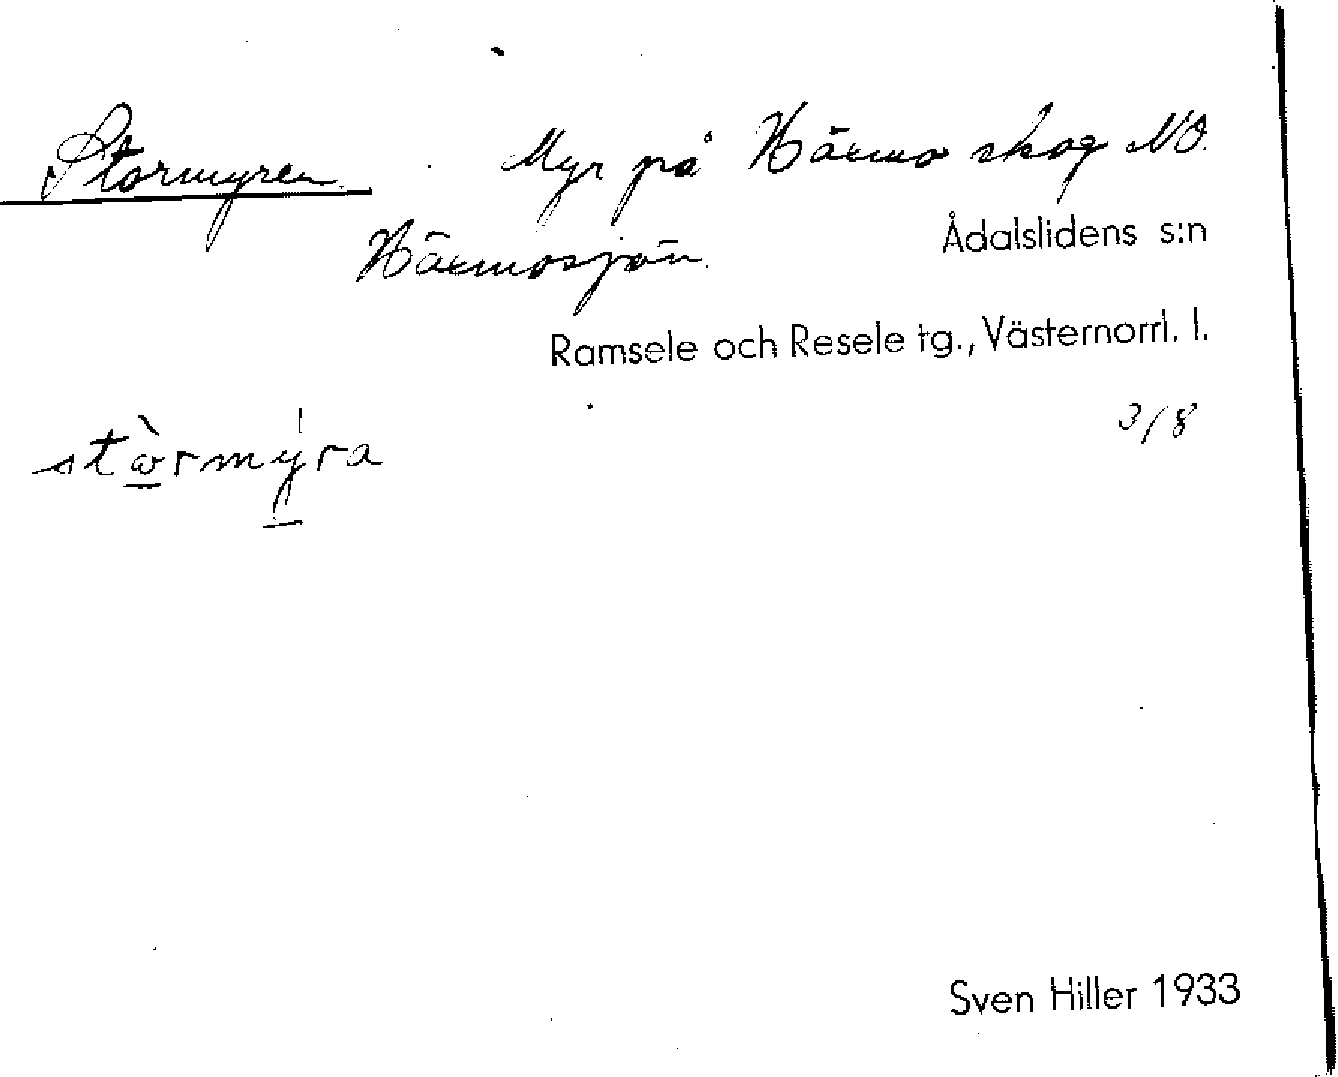 Stormyren. Myr på Härmo skog NO.
Härmosjön. Ådalslidens s:n
Ramsele och Resele tg., Västernorrl. l.
3/8
stòrmýra
Sven Hiller 1933